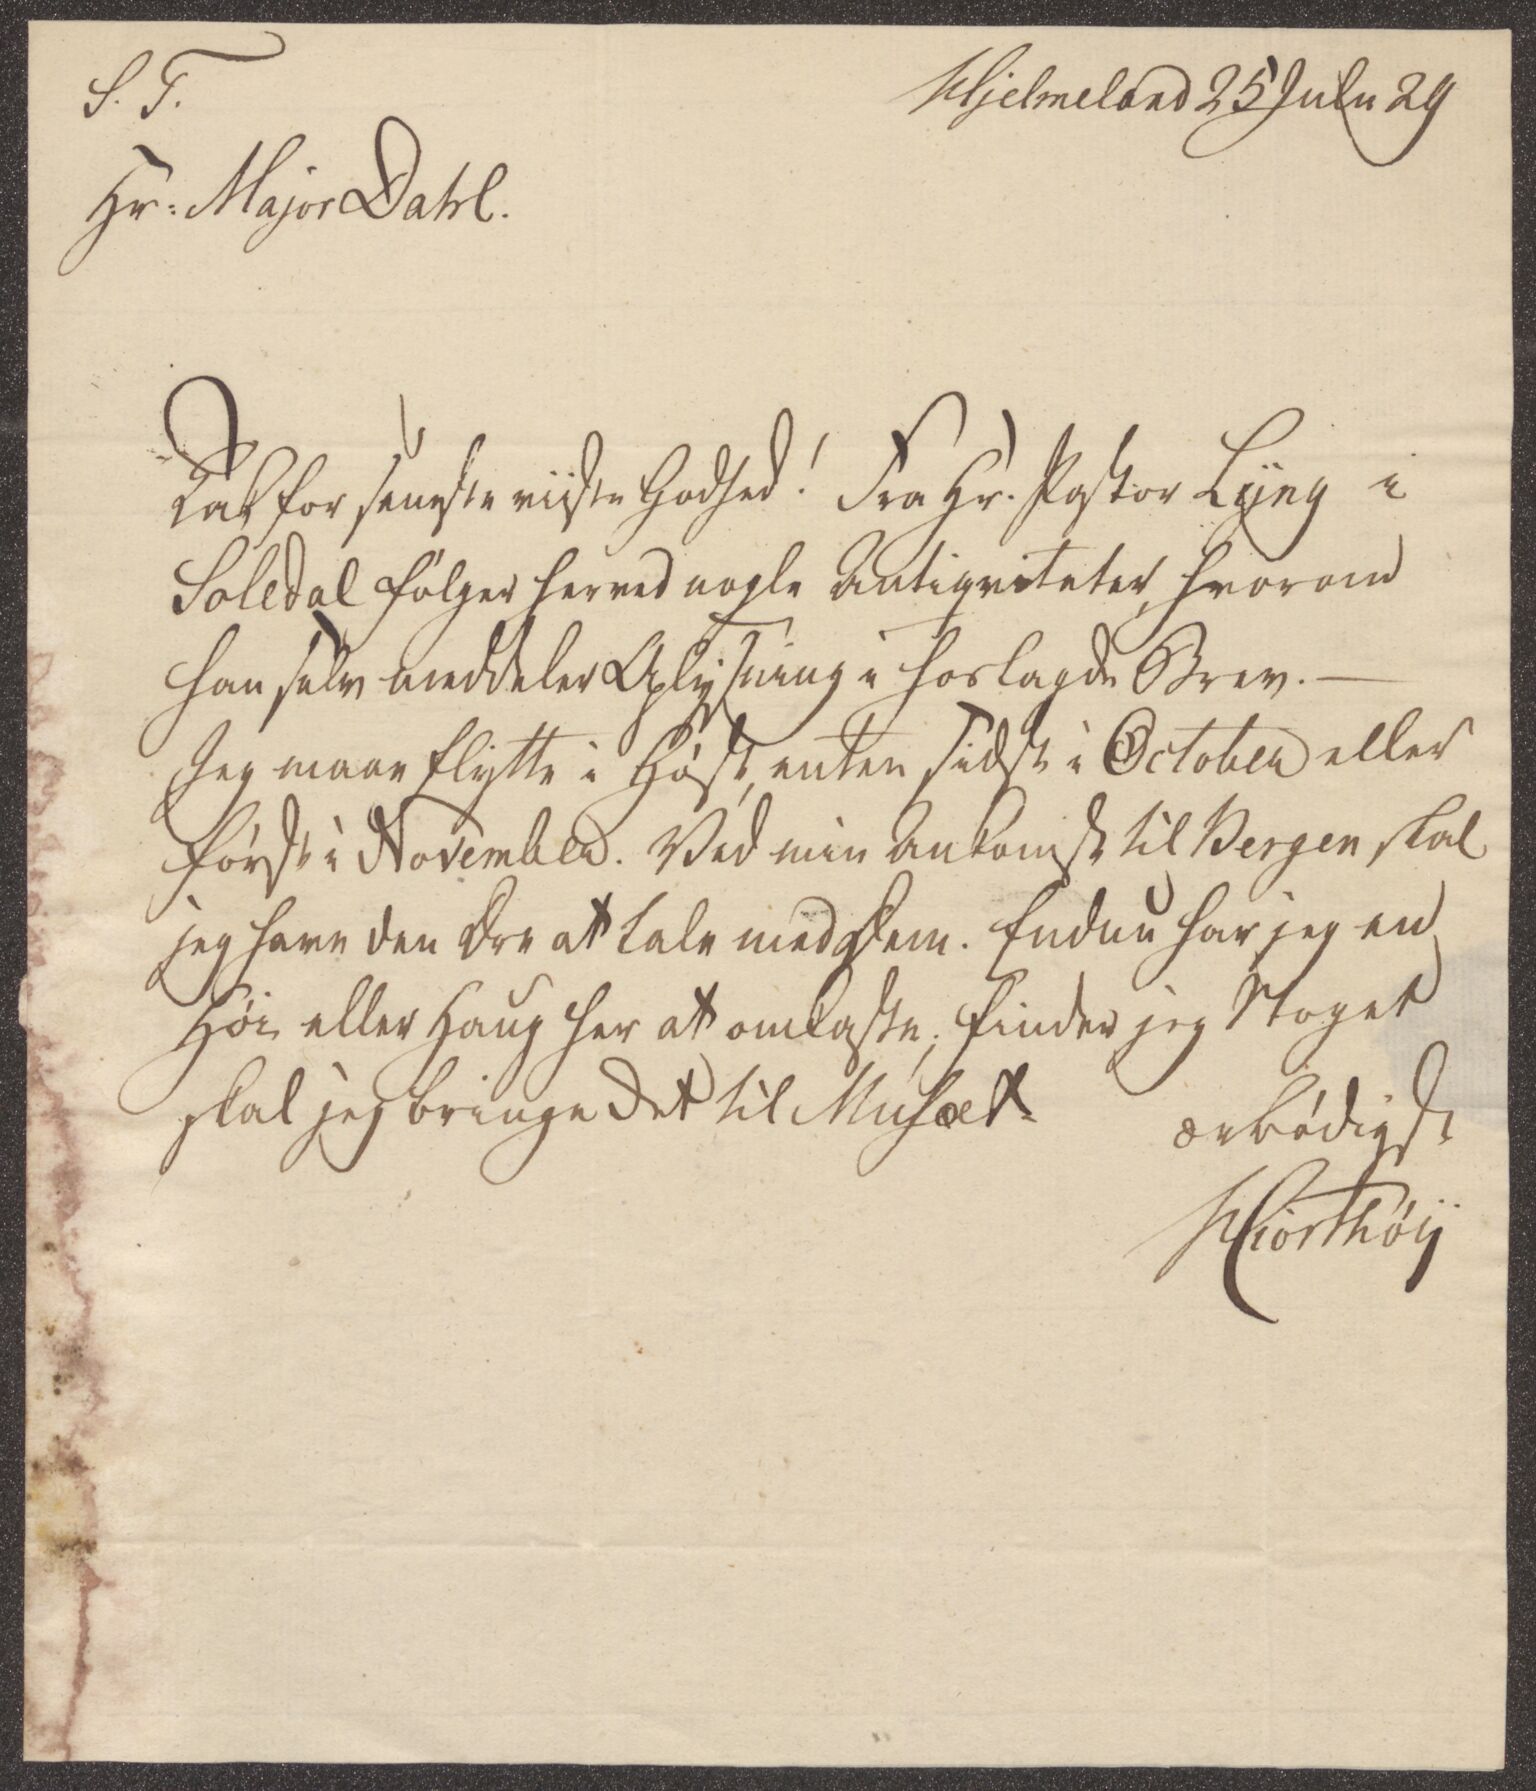 S. T.
Hjelmeland 25 July 29
Hr: Major Dahl.
Tak for seneste viiste Godhed! Fra Hr. Pastor Lyng i
Soledal følger herved nogle Antiqviteter, hvorom
han selv meddeler Oplysning i hoslagde Brev. —
Jeg maae flytte i Høst, enten sidst i October eller
først i November. Ved min Ankomst til Bergen skal
jeg have den Ære at tale med Dem. Endnu har jeg en
Höi eller Haug her at omkaste; finder jeg Noget
skal jeg bringe det til Musæet.
ærbødigst
Hjorthöÿ